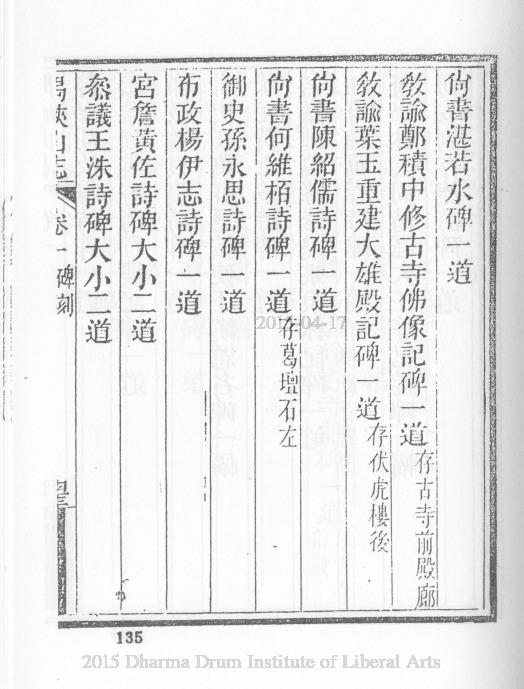 尙書湛若水碑一道
敎諭鄭積中修古寺佛像記碑一道存古寺前殿廊
敎諭葉玉重建大雄殿記碑一道存伏虎樓後
尙書陳紹儒詩碑一道
尙書何維栢詩碑一道存葛壇石左
御史孫永思詩碑一道
布政楊伊志詩碑一道
宮詹黃佐詩碑大小二道
叅議王洙詩碑大小二道
峽山志 卷一 碑刻
2017-04-17
135
2015 Dharma Drum Institute of Liberal Arts